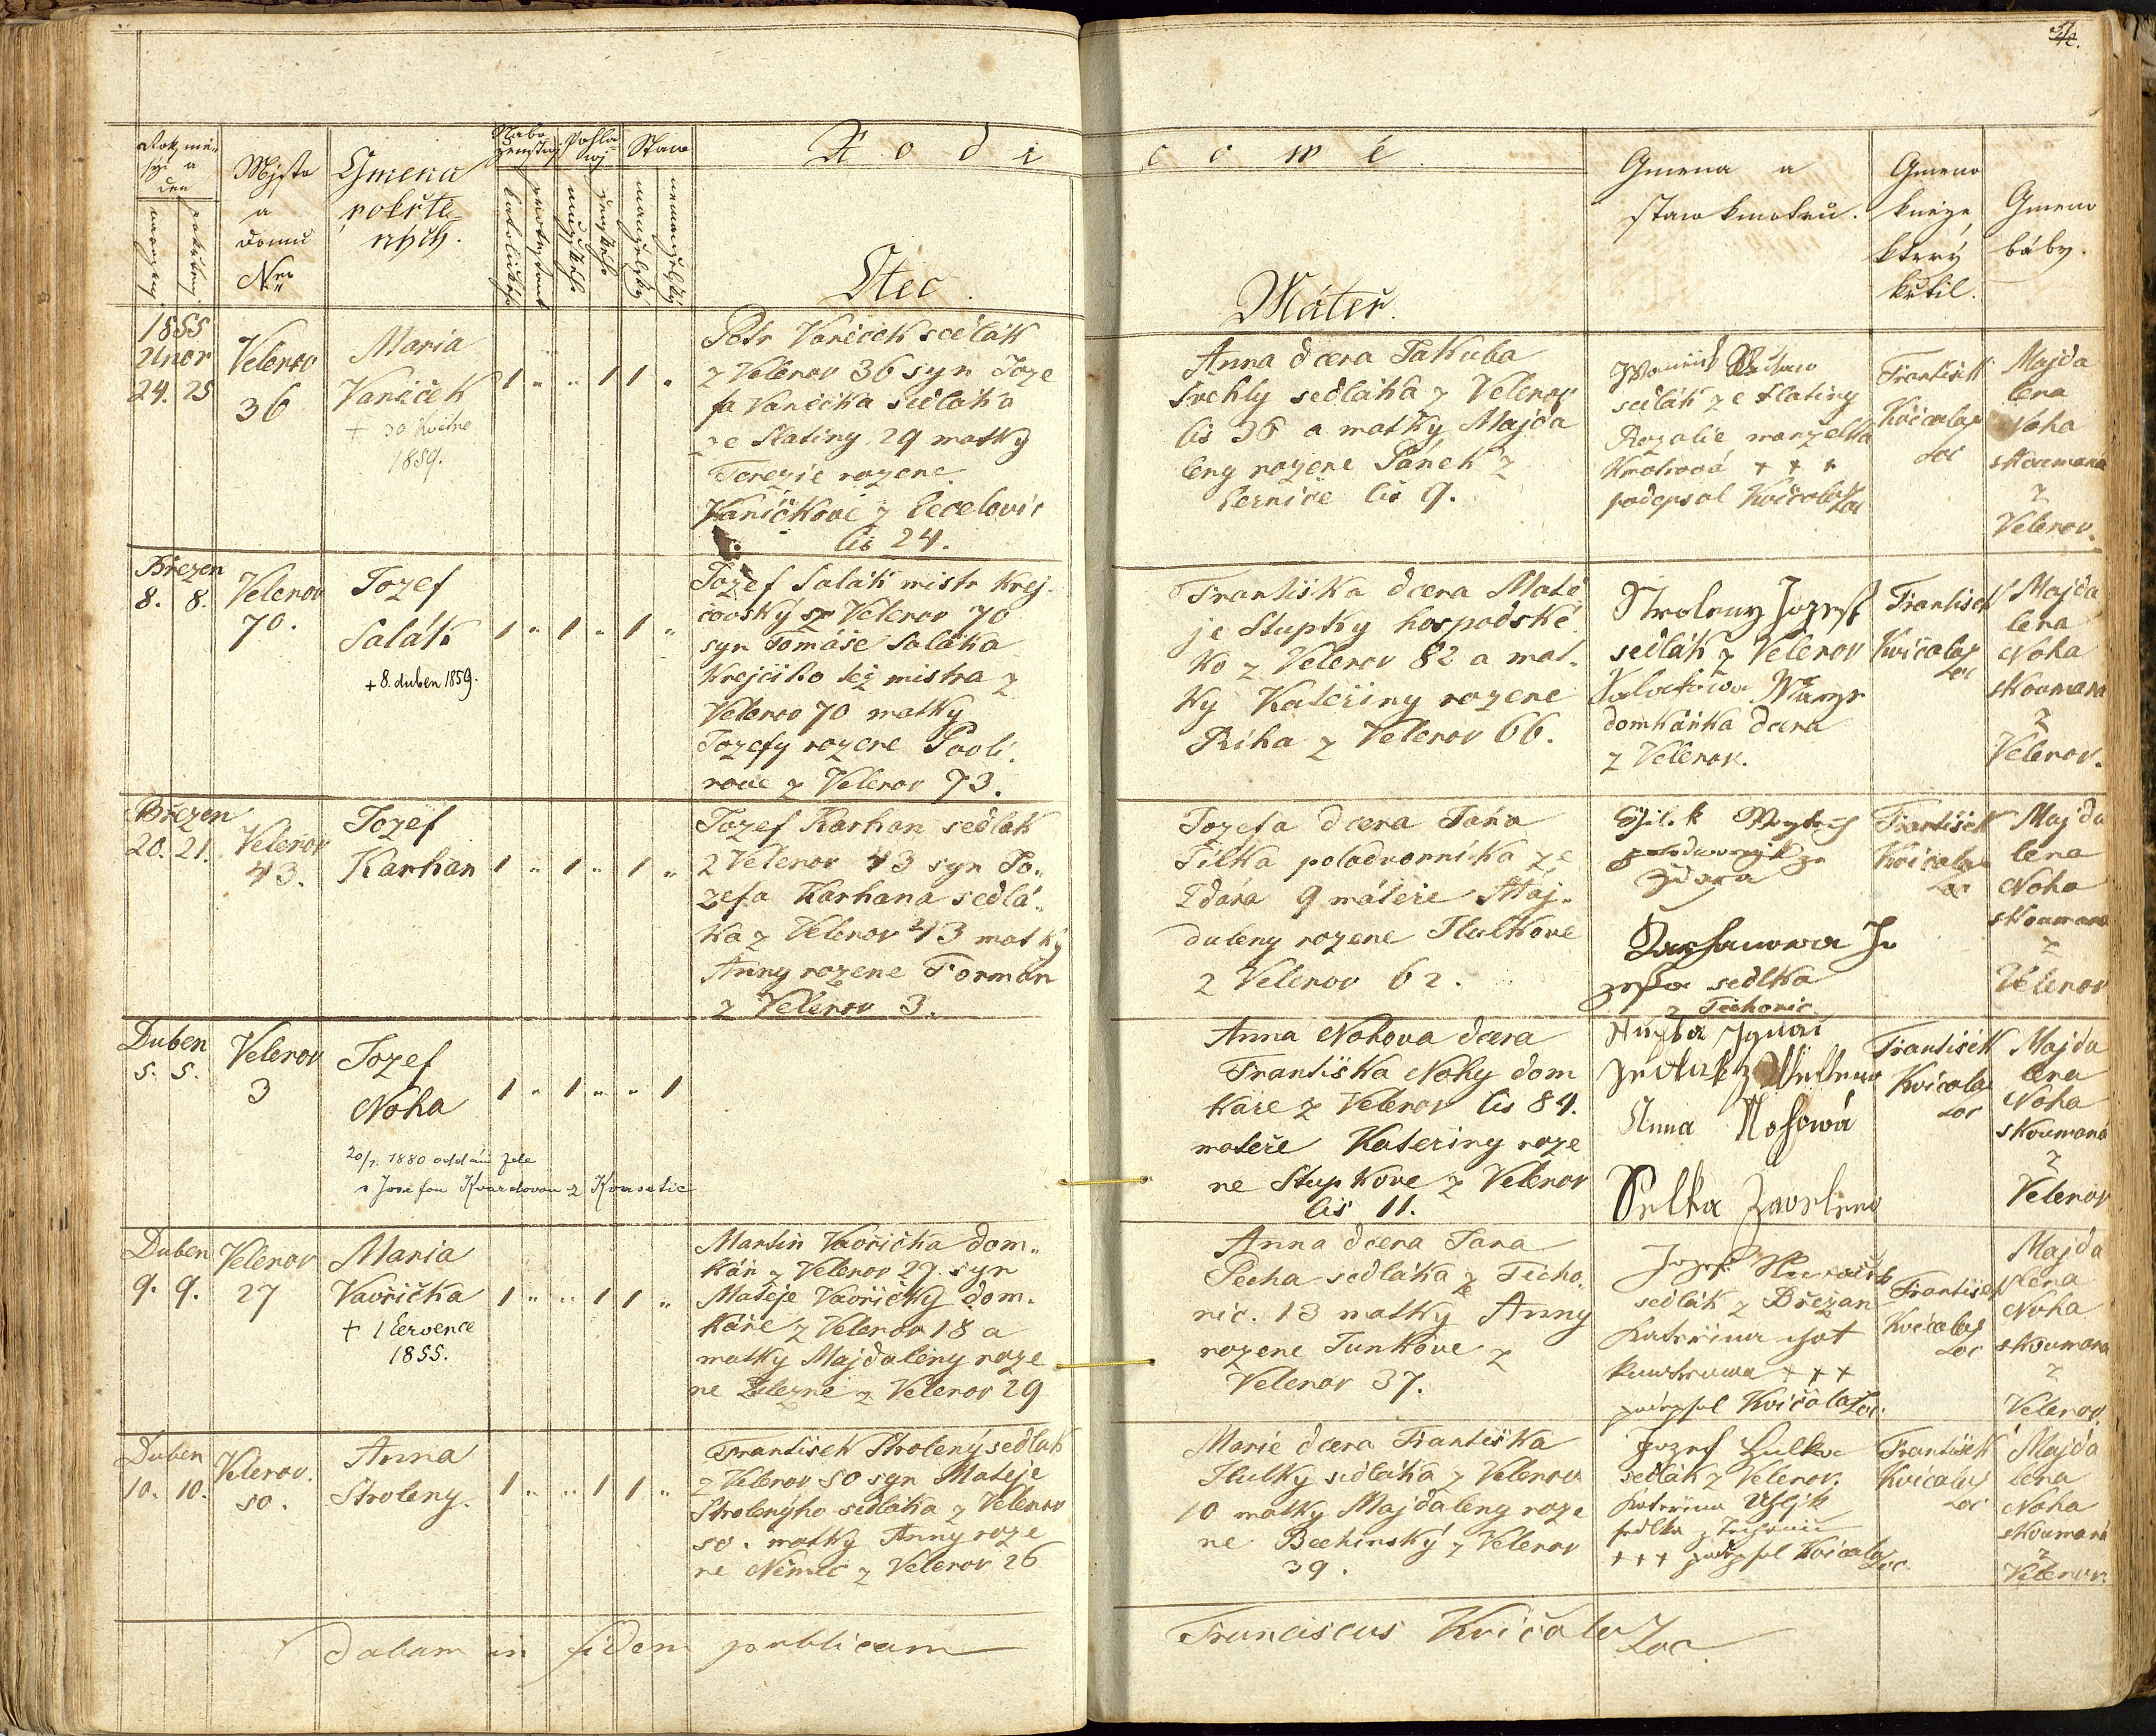 Mjsto
a
domu
Nro
Gmena
pokřtě-
ných.
Stav
Rodi
Otec.
cowé
Máteř.
Gmena a
staw kmotrů.
Gmeno
kněze
který
křtil.
Gmeno
báby.
1855
Unor
24. 25
Velenov
36
Maria
Vaníček
1859.
1 " " 1 1 "
Petr Vaníček sedlák
z Velenov 36 syn Joze
fa Vaníčka sedláka
ze Slatiny 29 matky
Terezie rozene
Vaníčkove z
čis 24.
Anna dcera Jakuba
sedláka z Velenov
čis 36 a matky Majda
leny rozene Pánek z
čis 9.
sedlák ze Slatiny
Rozalie manzelka
+ + +
podepsal Kvíčala Loc
František
Kvíčala
Loc
Majda
lena
Noha
skoumana
z
Velenov.
Březen
8. 8.
Velenov
70.
Jozef
Salák
+ 8. duben 1859.
1 " 1 " 1 "
Jozef Salák mistr krej
čovský z Velenov 70
syn Tomáše Saláka
krejčiho též mistra z
Velenov 70 matky
Jozefy rozene
z Velenov 73.
Františka dcera Matě
je Stupky hospodské
ho z Velenov 82 a mat-
ky Kateřiny rozene
Říha z Velenov 66.
Stroleny Jozef
sedlák z Velenov
domkářka dcera
z Velenov.
František
Kvíčala
Loc
Majda
lena
Noha
skoumana
z
Velenov.
Březen
20. 21.
Velenov
43.
Jozef
Karhan
1 " 1 " 1 "
Jozef Karhan sedlak
z Velenov 43 syn Jo-
zefa Karhana sedlá-
ka z Velenov 43 matky
Anny rozene Forman
z Velenov 3.
Jozefa dcera Jána
Jílka poladvorníka ze
Ždára 9 máteře Maj-
daleny rozene Hulkove
z Velenov 62.
Karhanowa Jo
zefa sedlka
z Techonic
František
Kvíčala
Loc
Majda
lena
Noha
skoumana
z
Velenov
Duben
5. 5.
Velenov
3
Jozef
Noha
1 " 1 " " 1
Anna Nohova dcera
Františka Nohy dom
káře z Velenov čis 84.
mateře Kateřiny roze
ne Stupkove z Velenov
čis 11.
Anna Nohowá
František
Kvíčala
Loc
Majda
lena
Noha
skoumana
z
Velenov
Duben
9. 9.
Velenov
27
Maria
Vavřička
+ 1 července
1855.
1 " " 1 1 "
Martin Vavřička dom-
kář z Velenov 27. syn
Matěje Vavřičky dom-
káře z Velenov 18 a
matky Majdaleny roze
ne Železne z Velenov 29
Anna dcera Jana
Pecha sedláka z Techo
nic. 13 matky Anny
rozene Junkove z
Velenov 37.
Jozef
sedlák z Břežan
+ + +
podepsal Kvíčala Loc.
František
Kvíčala
Loc
Majda
lena
Noha
skoumana
z
Velenov.
Duben
10. 10.
Velenov.
50.
Anna
Stroleny.
1 " " 1 1 "
František Strolený sedlak
z Velenov 50 syn Matěje
Strolenýho sedláka z Velenov
50. matky Anny roze
ne Němec z Velenov 26
Marie dcera Františka
Hulky sedláka z Velenov
10 matky Majdaleny roze
ne Bechinský z Velenov
39.
Jozef Hulka
sedlák z Velenov.
+ + + podepsal Kvíčala Loc.
František
Kvíčala
Loc
Majda
lena
Noha
skoumana
z
Velenov.
Dabam in fidem publicam
Franciscus Kvíčala Loc.